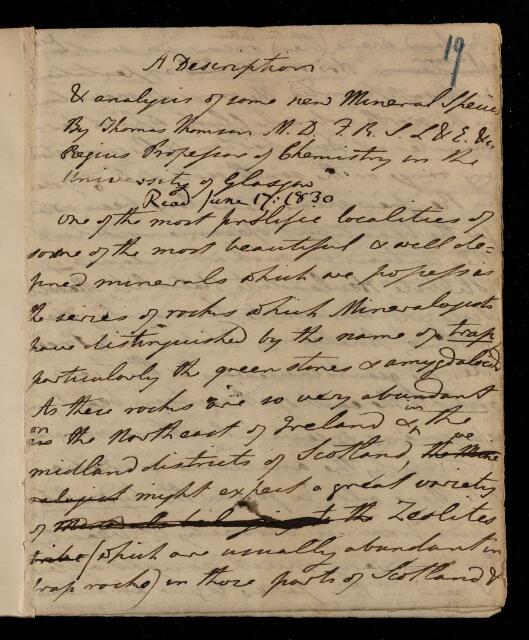 19
A Description
& analysis of some new Mineral Species
By Thomas Thomson M.D. F.R.S. L & E. &c
Regius Professor of Chemistry in the
University of Glasgow
Read June 17: 1830
One of the most prolific localities of
some of the most beautiful & well de-
fined minerals which we possess is
the series of rocks which Mineralogists
have distinguished by the name of trap
particularly the greenstones & amygdaloids
As these rocks are so very abundant
on the North east of Ireland & in the
midland districts of Scotland, the Mine we
ralogist might expect a great variety
of Minerals belonging to the Zeolites
(which are usually abundant in
trap rocks) in those parts of Scotland &